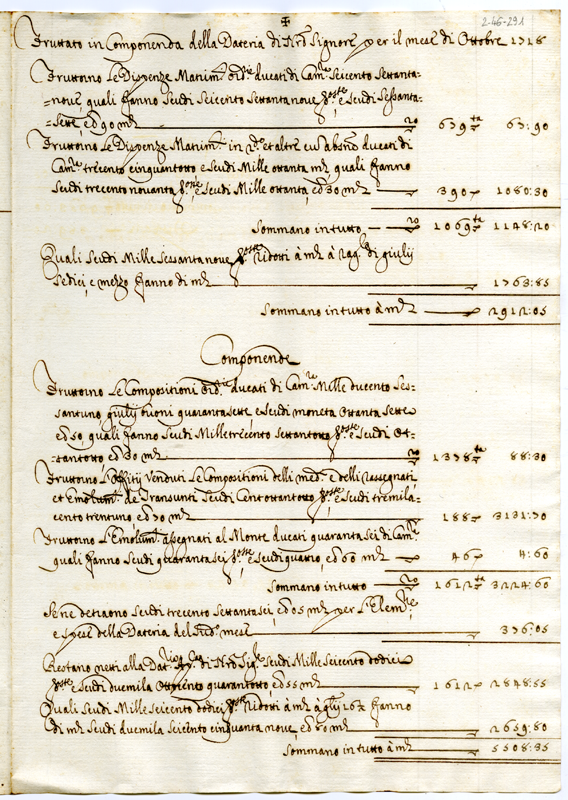 2-46-291
✠
Fruttato in Componenda della Dateria di Nro Signore per il mese di Ottobre 1718
Fruttorno Le Dispenze Matrim. ducati di Cam.ra Seicento Settanta-
=nove, quali fanno Scudi Seicento Settanta nove p.ste e Scudi Sessanta-
=Sette, ed 90 m.ta 679 67:90
Fruttorno Le Dispenze Matrim. in et altre ducati di
Cam.ra trecento cinquantotto e Scudi Mille ottanta m.ta quali fanno
Scudi trecento novanta p.ste e Scudi Mille ottanta, ed 30 m.ta 390 1080:30
Sommano in tutto 1069 1148:20
Quali Scudi Mille Sessanta nove p.ste ridotti à m.ta à rag.e di giulij
Sedici, e mezzo fanno di m.ta 1763:85
Sommano in tutto à m.ta 2912:05
Componende
Fruttorno Le Compositioni ducati di Cam.ra Mille ducento Ses-
santuno giulij buoni quaranta sette e Scudi moneta Ottanta Sette
ed 50, quali fanno Scudi Mille trecento settantotto p.ste e Scudi Ot-
=tantotto, ed 30 m.ta 1378 88:30
Fruttorno L'Offitij Venduti Le Compositioni delli med. e delli rassegnati
et Emolum. de Transunti Scudi Cent'ottantotto p.ste e Scudi tremila-
cento trentuno, ed 70 m.ta 188 3131:70
Fruttorno L'Emolum. assegnati al Monte ducati quaranta sei di Cam.ra
quali fanno Scudi quaranta sei p.ste, e Scudi quattro, ed 60 m.ta 46 4:60
Sommano in tutto 1612 3224:60
Se ne detrano Scudi trecento Settanta sei, ed 05 m.ta per L'Elem.
e spese della Dateria del Sud.o mese 376:05
Restano netti alla Dat. di Nro Sig.re Scudi Mille Seicento dodici
p.ste e Scudi duemila Ottocento quarantotto ed 55 m.ta 1612 2848:55
Quali Scudi Mille Seicento dodici p.ste ridotti à m.ta à giulij 16½ fanno
di m.ta Scudi duemila Seicento cinquanta nove, ed 80 m.ta 2659:80
Sommano in tutto à m.ta 5508:35